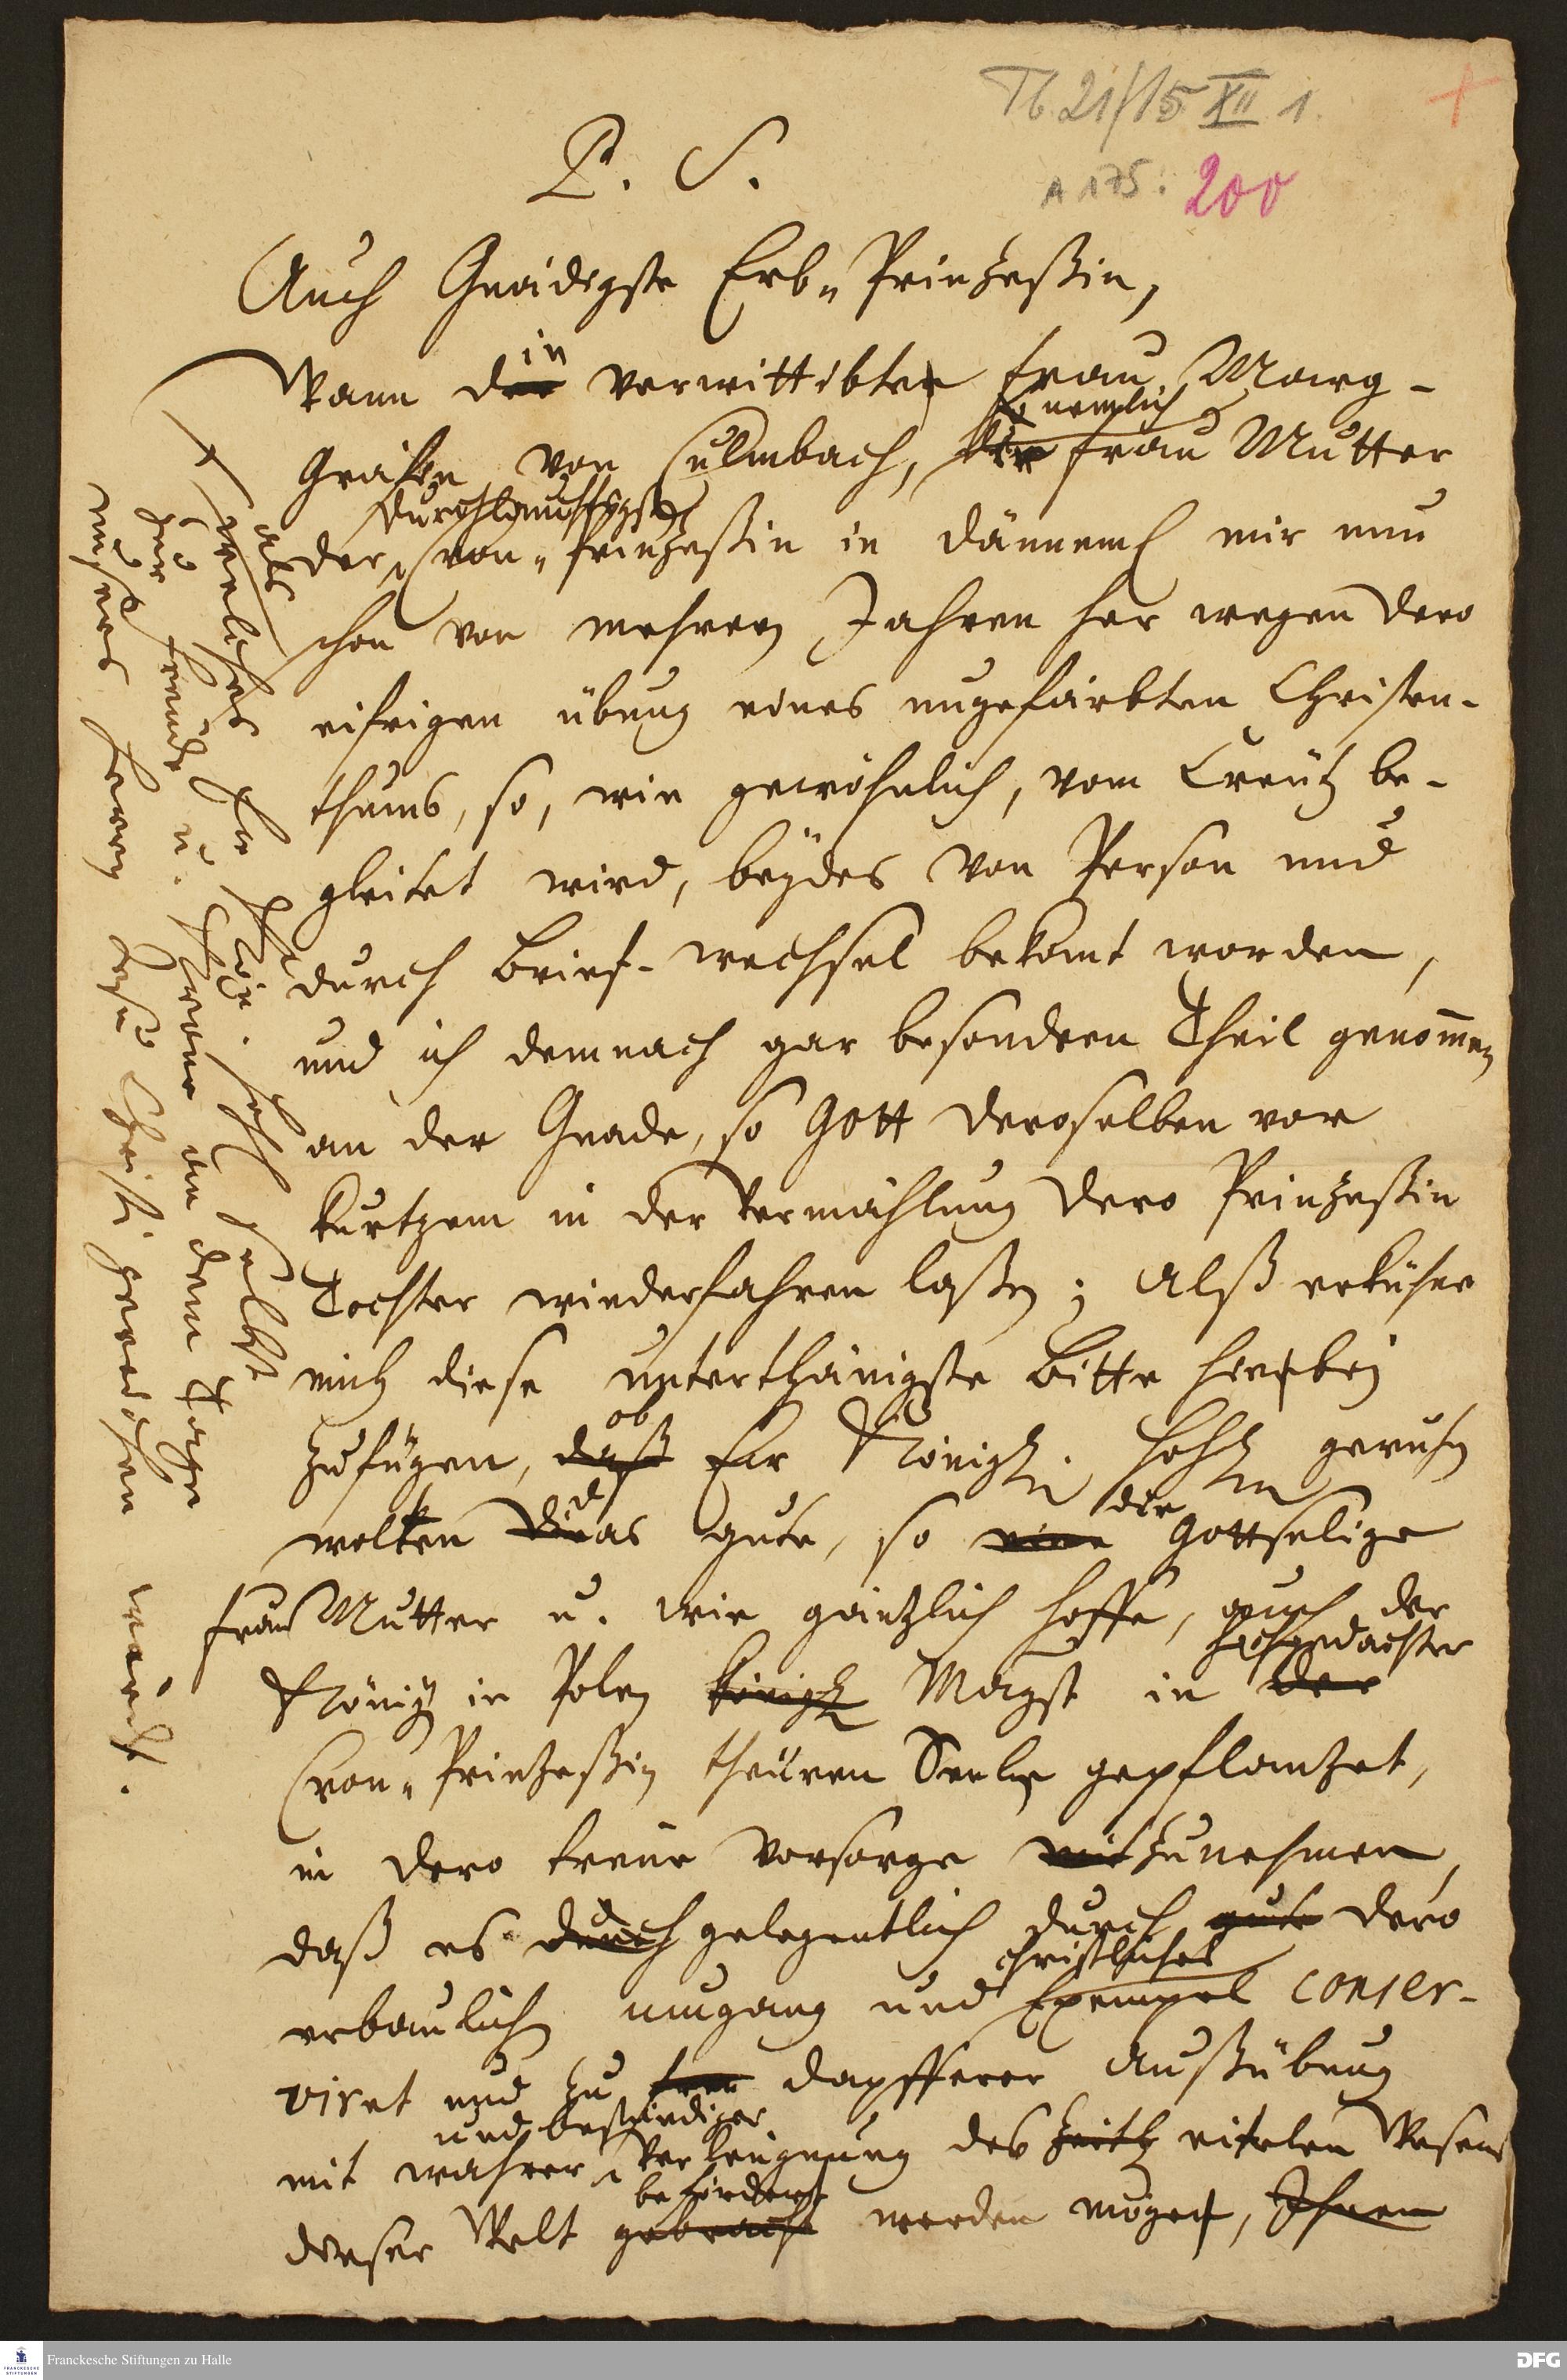 Tb. 21/15 XII 1.
A 175: 200
P. S.
Auch Gnädigste Erb-Printzeßin,
Wann der in verwittibten Frau Marg-
nemlich
Gräfin von Culmbach, der Frau Mutter
Durchlauchtigsten
der Cron-Printzeßin in Dännemk mir nun
schon von mehrern Jahren her wegen dero
eifrigen übung eines ungefärbten Christen-
thums, so, wie gewöhnlich, vom Creutz be-
gleitet wird, beydes von Person und
durch Brief-wechsel bekant worden,
und ich demnach gar besondern Theil genom̄en
an der Gnade, so Gott deroselben vor
kurtzem in der Vermählung dero Printzeßin
Tochter wiederfahren laßen; Alß erkühne
mich diese unterthänigste Bitte hierbey
ob
zufügen, daß Ew Königl. Hoht geruhen
d die
wolten das gute, so eine Gottselige
Frau Mutter u. wie gäntzlich hoffe, auch der
hochgedachter
König in Polen Königl Mayst in der
Cron-Printzeßin theuren Seele gepflantzet,
in dero treue Vorsorge mitzunehmen,
daß es durch gelegentlich durch gute dero
christliches
erbaulichen umgang und Exempel conser-
viret und zu dapfferer Außübung
und beständiger
mit wahrer Verleugnung des eitelen Wesens
befördert
dieser Welt gebracht werden möge, Ihnen
welches Ew Kön. Hoh selbst
zur Freude u. Krone an dem Tage
unsers Herrn Jesu Christi gereichen
wird.
Franckesche Stiftungen zu Halle
FRANCKESCHE STIFTUNGEN
DFG